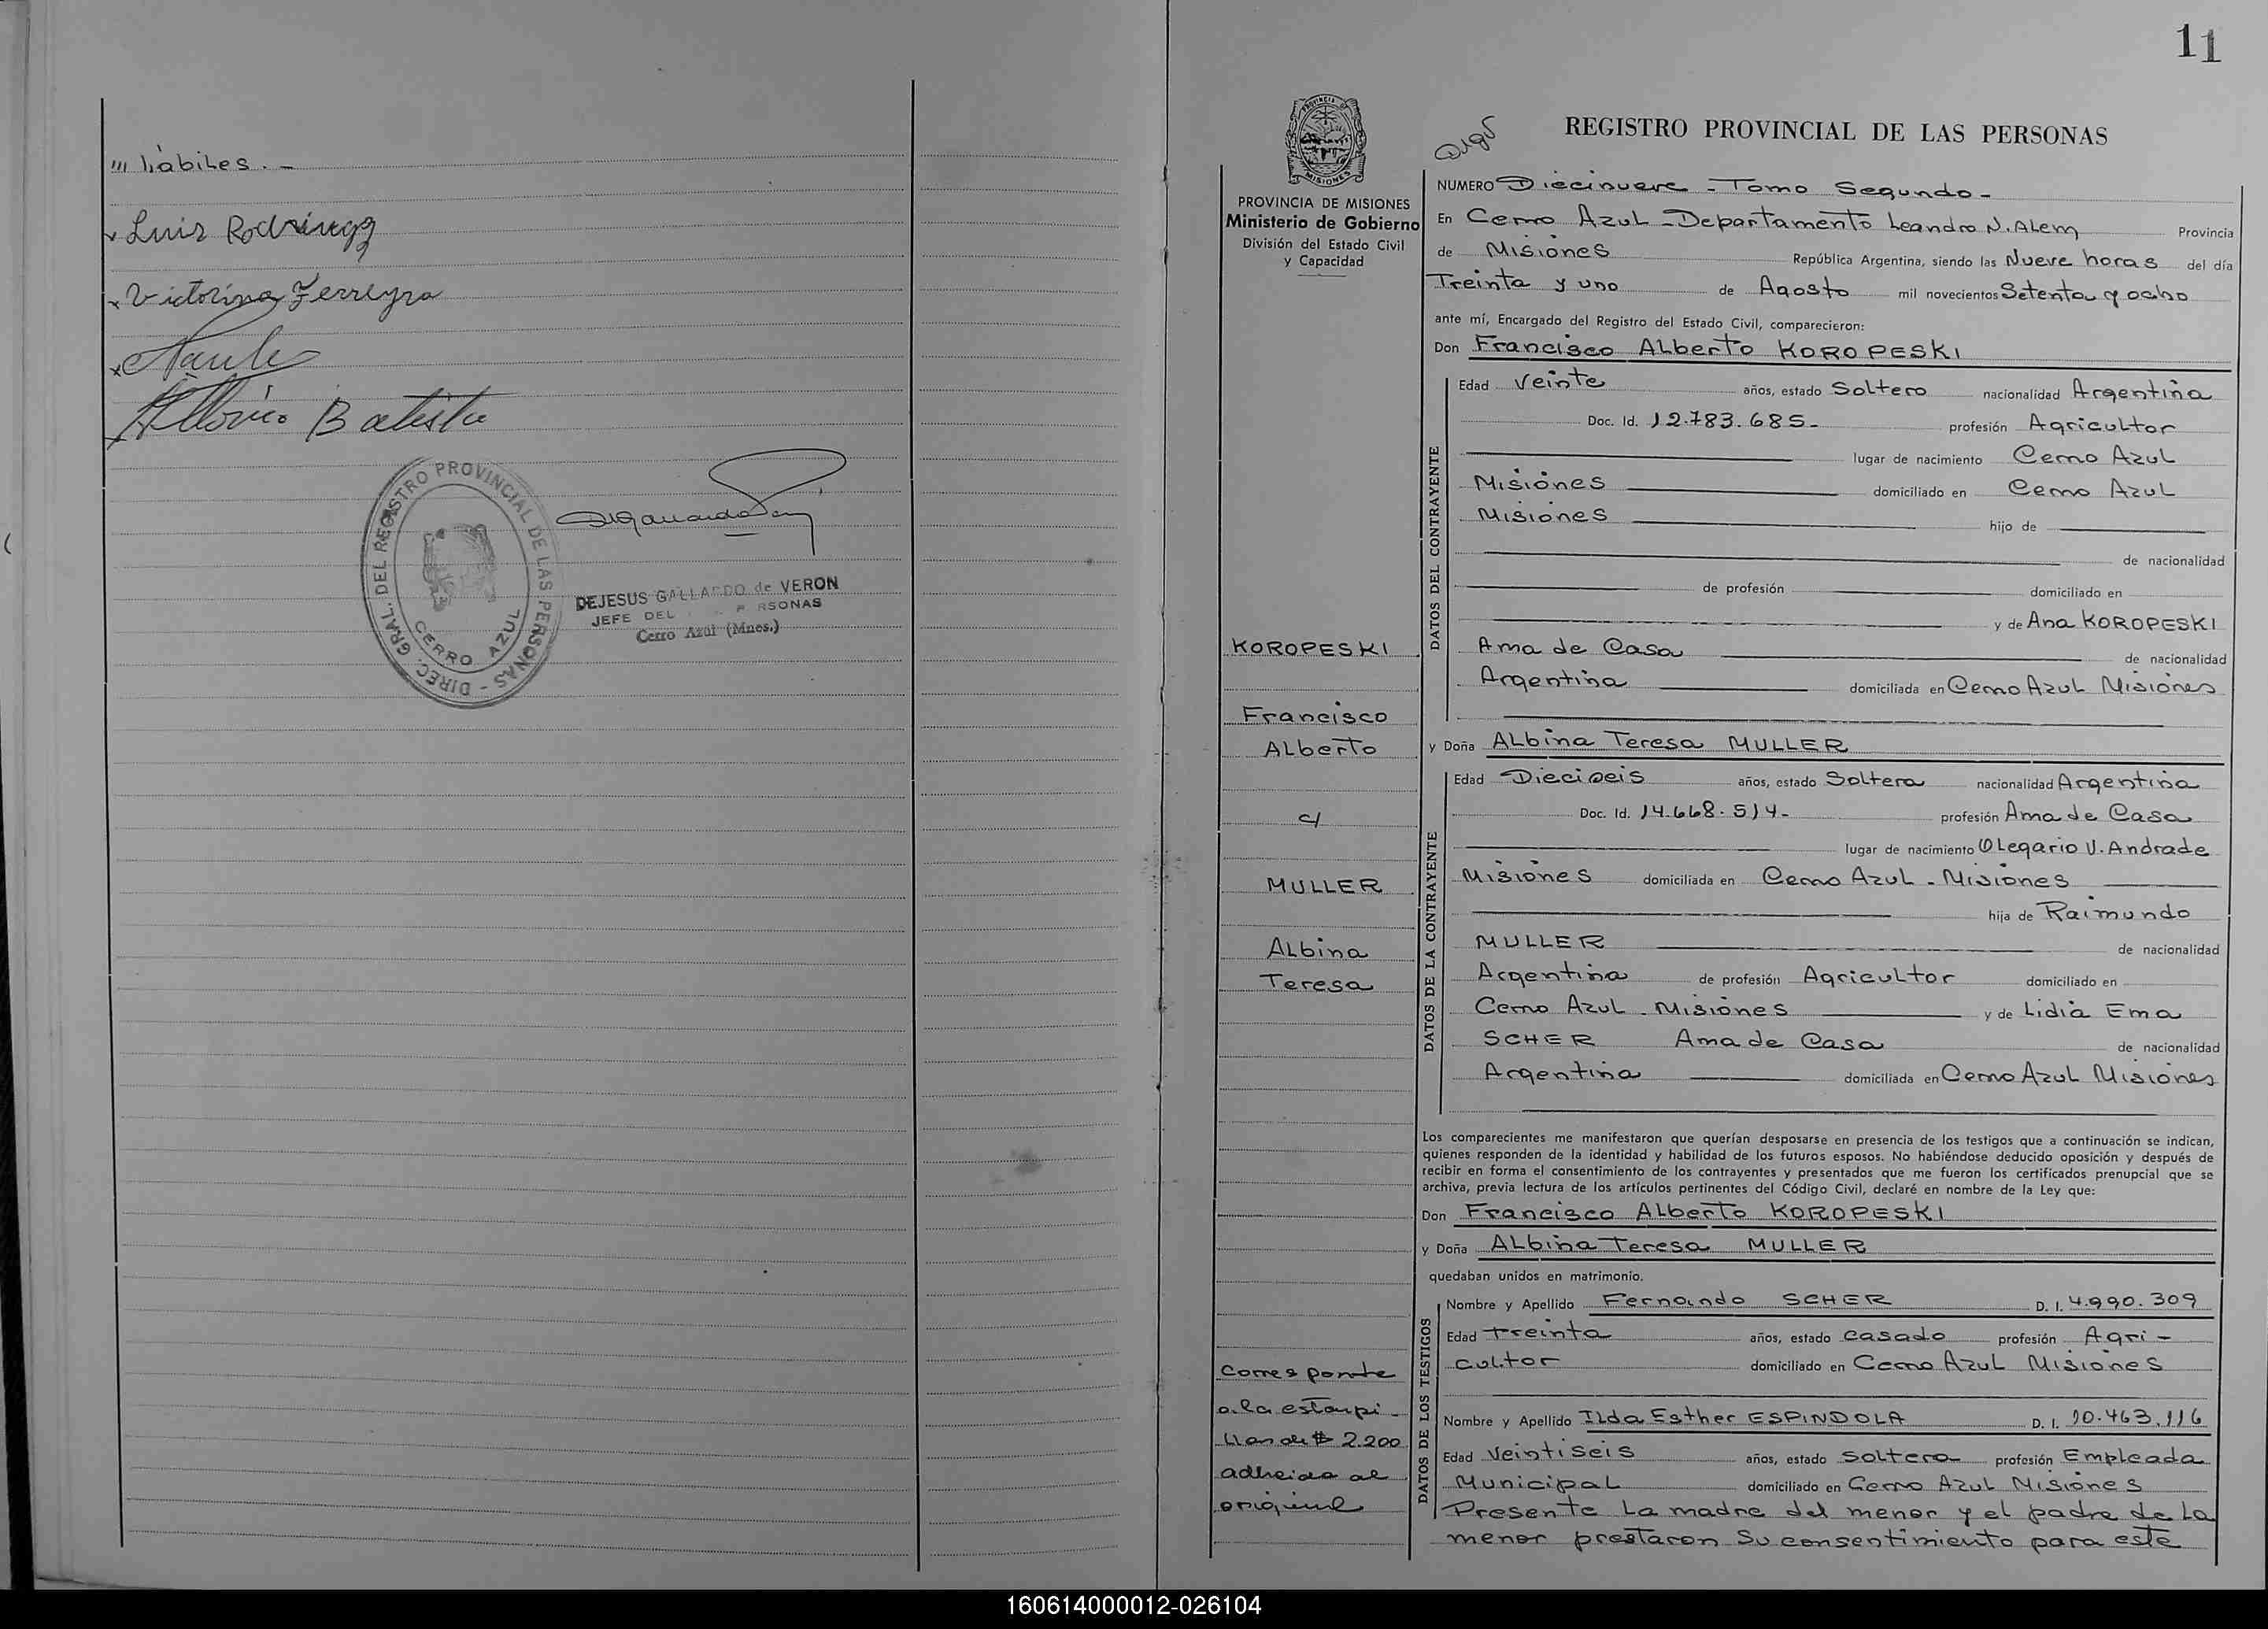 "' hábiles. -
Luis Rodriguez
Victorina Ferreyra
Batista
DIREC. GRAL. DEL REGISTRO PROVINCIAL DE LAS PERSONAS -
CERRO AZUL
DEJESUS GALLARDO de VERON
JEFE DEL PERSONAS
Cerro Azul (Mnes.)
11
PROVINCIA DE MISIONES
Ministerio de Gobierno
División del Estado Civil
y Capacidad
KOROPESKI
Francisco
Alberto
c/
MULLER
Albina
Teresa
Corresponde
a la estampi-
llas de $ 2.200
adherida al
original
REGISTRO PROVINCIAL DE LAS PERSONAS
NUMERO Diecinueve - Tomo Segundo -
En Cerro Azul - Departamento Leandro N. Alem Provincia
de Misiones República Argentina, siendo las Nueve horas del día
Treinta y uno de Agosto mil novecientos Setenta y ocho
ante mí, Encargado del Registro del Estado Civil, comparecieron:
Don Francisco Alberto KOROPESKI
DATOS DEL CONTRAYENTE
Edad Veinte años, estado Soltero nacionalidad Argentina
Doc. Id. 12.783.685- profesión Agricultor
lugar de nacimiento Cerro Azul
Misiones domiciliado en Cerro Azul
Misiones hijo de
de nacionalidad
de profesión domiciliado en
y de Ana KOROPESKI
Ama de Casa de nacionalidad
Argentina domiciliada en Cerro Azul Misiones
y Doña Albina Teresa MULLER
DATOS DE LA CONTRAYENTE
Edad Dieciseis años, estado Soltera nacionalidad Argentina
Doc. Id. 14.668.514- profesión Ama de Casa
lugar de nacimiento Olegario V. Andrade
Misiones domiciliada en Cerro Azul - Misiones
hija de Raimundo
MULLER de nacionalidad
Argentina de profesión Agricultor domiciliado en
Cerro Azul - Misiones y de Lidia Ema
SCHER Ama de Casa de nacionalidad
Argentina domiciliada en Cerro Azul Misiones
Los comparecientes me manifestaron que querían desposarse en presencia de los testigos que a continuación se indican,
quienes responden de la identidad y habilidad de los futuros esposos. No habiéndose deducido oposición y después de
recibir en forma el consentimiento de los contrayentes y presentados que me fueron los certificados prenupcial que se
archiva, previa lectura de los artículos pertinentes del Código Civil, declaré en nombre de la Ley que:
Don Francisco Alberto KOROPESKI
y Doña Albina Teresa MULLER
quedaban unidos en matrimonio.
DATOS DE LOS TESTIGOS
Nombre y Apellido Fernando SCHER D. I. 4.990.309
Edad treinta años, estado casado profesión Agri-
cultor domiciliado en Cerro Azul Misiones
Nombre y Apellido Ilda Esther ESPINDOLA D. I. 10.463.116
Edad Veintiseis años, estado soltera profesión Empleada
Municipal domiciliado en Cerro Azul Misiones
Presente la madre del menor y el padre de la
menor prestaron su consentimiento para este
160614000012-026104